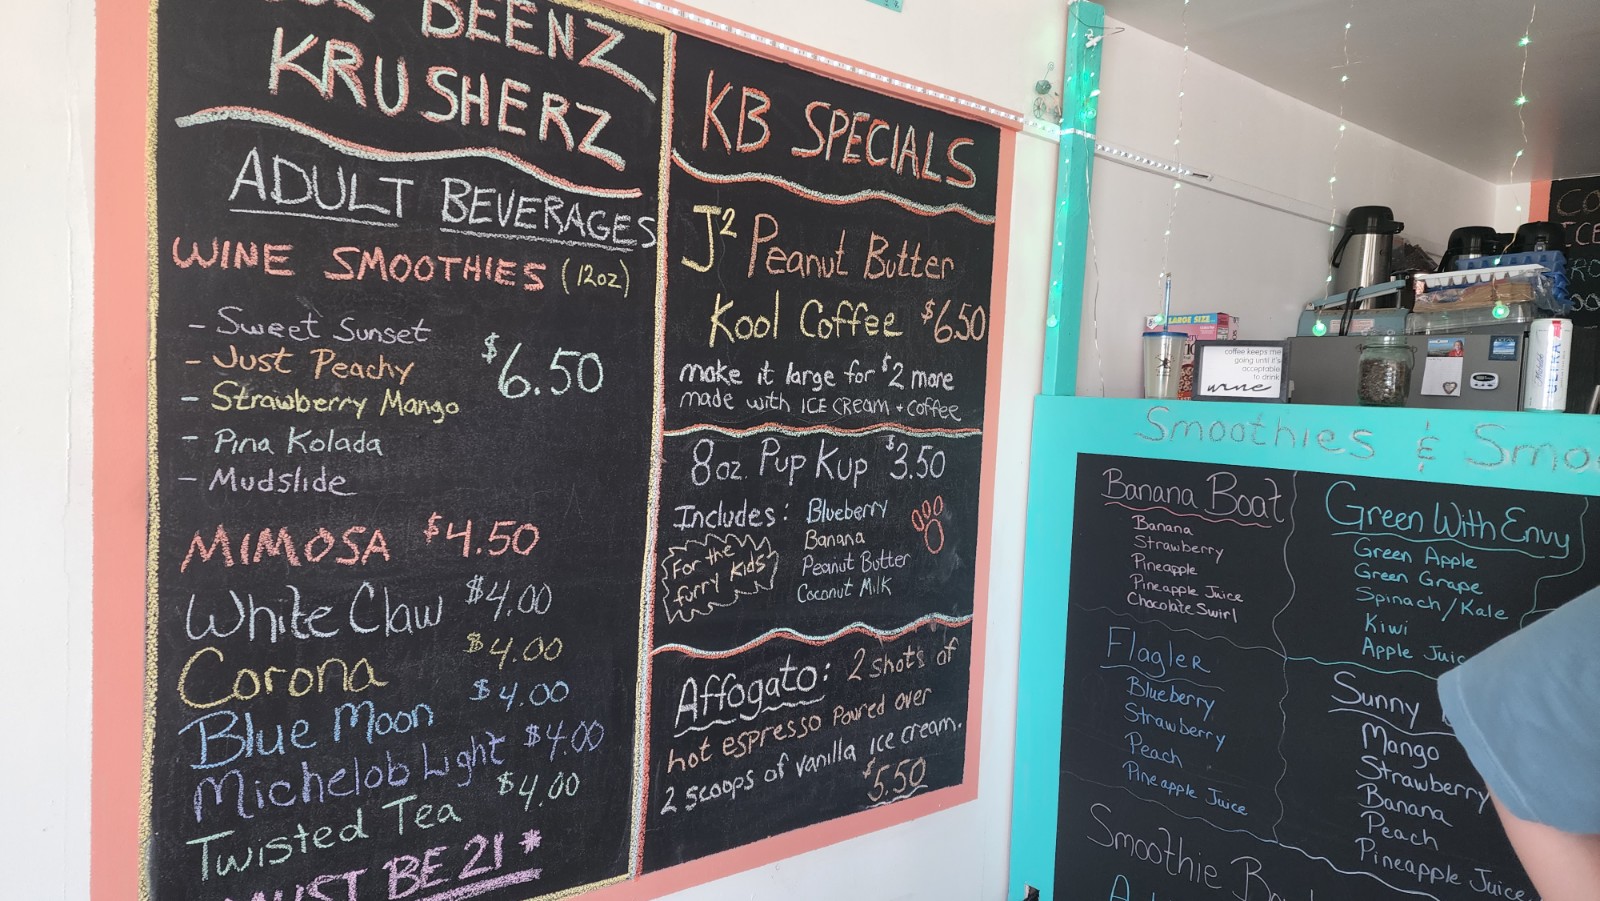 BEENZ
KRUSHERZ
ADULT BEVERAGES
WINE SMOOTHIES (12oz)
- Sweet Sunset
- Just Peachy
- Strawberry Mango
- Pina Kolada
- Mudslide
$6.50
MIMOSA $4.50
White Claw $4.00
Corona $4.00
Blue Moon $4.00
Michelob Light $4.00
Twisted Tea $4.00
MUST BE 21 *
KB SPECIALS
J² Peanut Butter
Kool Coffee $6.50
make it large for $2 more
made with ICE CREAM + Coffee
8oz. Pup Kup $3.50
Includes: Blueberry
Banana
Peanut Butter
Coconut Milk
For the
furry Kids
Affogato: 2 shots of
hot espresso Poured over
2 scoops of vanilla ice cream.
$5.50
LARGE SIZE
coffee keeps me
going until it's
acceptable
to drink
wine
ULTRA
Smoothies & Smo
Banana Boat
Banana
Strawberry
Pineapple
Pineapple Juice
Chocolate Swirl
Green With Envy
Green Apple
Green Grape
Spinach/Kale
Kiwi
Apple Juic
Flagler
Blueberry
Strawberry
Peach
Pineapple Juice
Sunny
Mango
Strawberry
Banana
Peach
Pineapple Juice
Smoothie Bowl